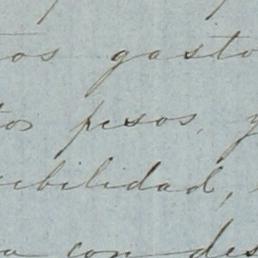 os gasto
tos pesos, y
ibilidad,
a con des